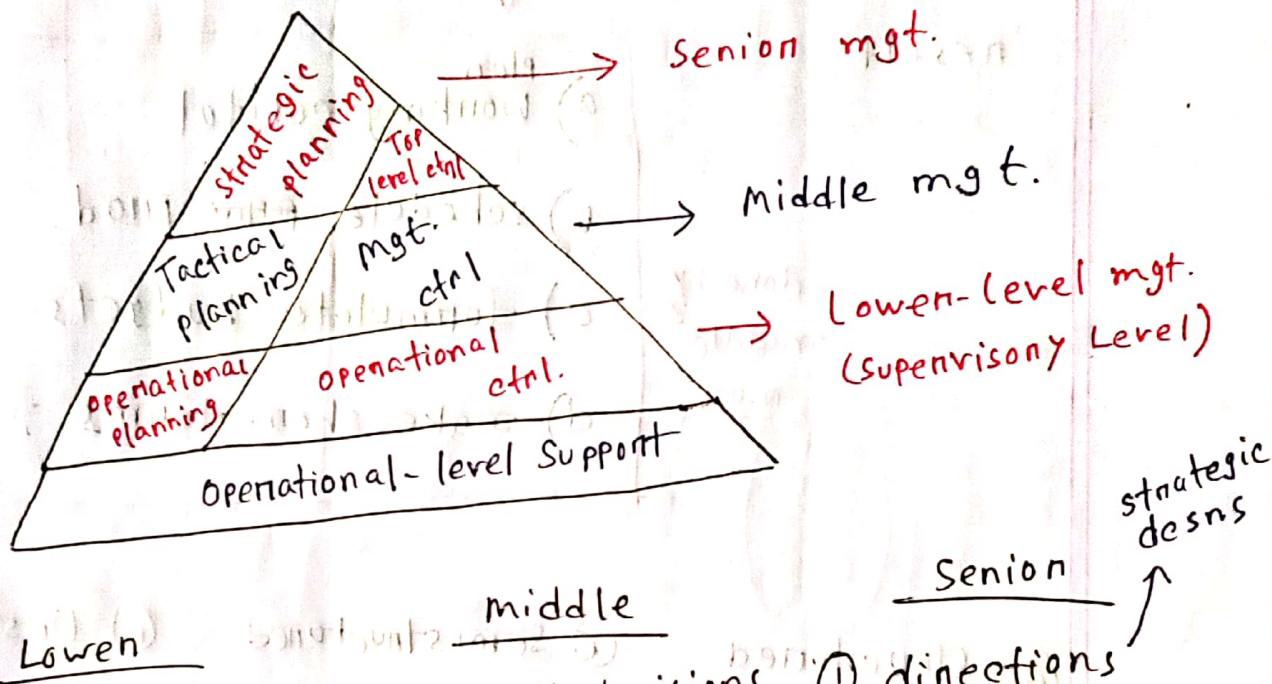 strategic
planning
Top
level ctrl
Senior mgt.
Tactical
planning
mgt.
ctrl
middle mgt.
operational
planning
operational
ctrl.
Lower-level mgt.
(Supervisory Level)
Operational-level Support
strategic
desns
Lower
middle
Senior
① directions